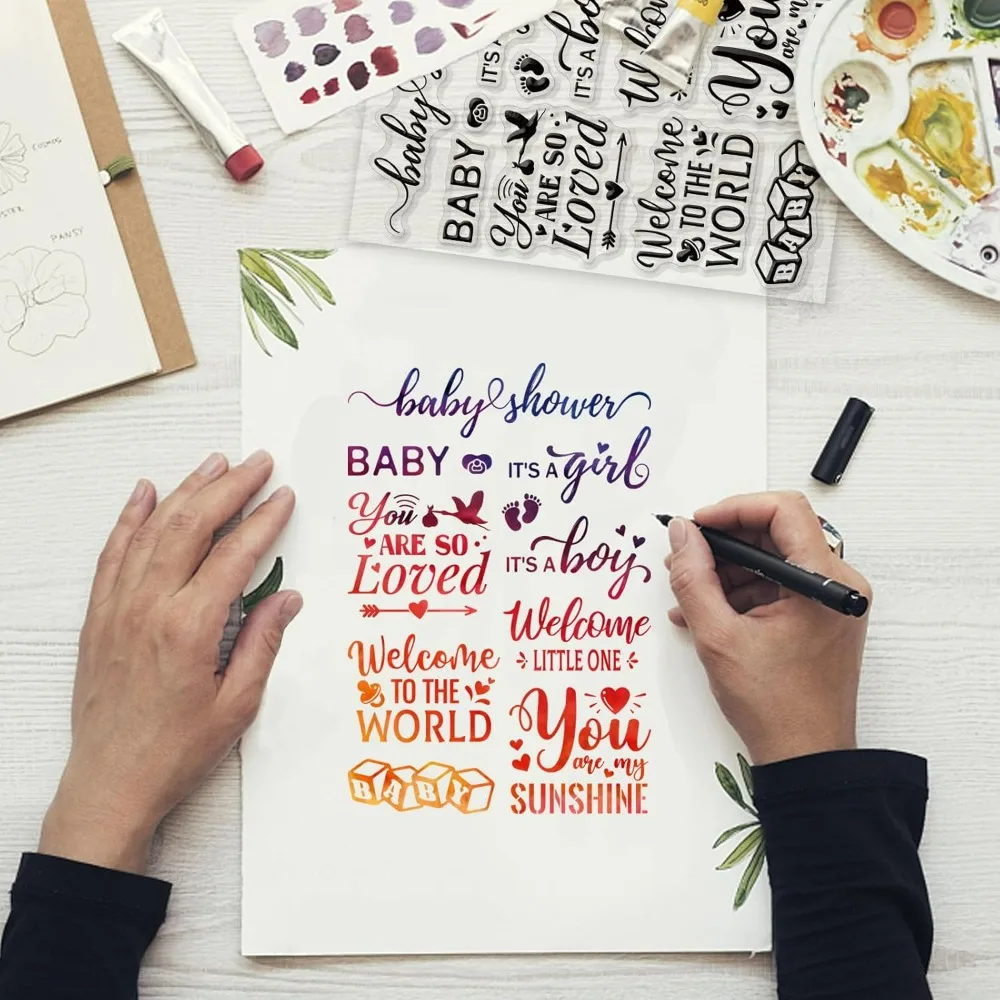 COSMOS
PANSY
baby
BABY
IT'S A
You
ARE SO
Loved
IT'S A
Welcome
TO THE
WORLD
You
are
BABY
baby shower
BABY
IT'S A girl
You
ARE SO
Loved
IT'S A boy
Welcome
LITTLE ONE
Welcome
TO THE
WORLD
You
are my
SUNSHINE
BABY